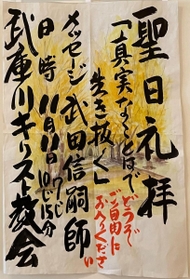 聖日礼拝
「真実なることばで
生き抜く」
どうぞ
ご自由に
お入りください
メッセージ 武田信嗣師
日時 11月11日 10じ15分
武庫川キリスト教会